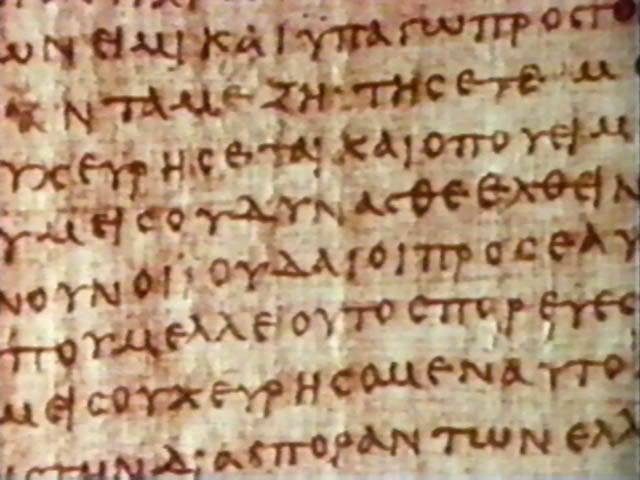 ωΝΕΙΜΙΚΑΙΫΠΑΓωΠΡΟϹΤΟ
ΝΤΑΜΕΖΗ·ΤΗϹΕΤΕΜ
ΥΧΕΥΡΗϹΕΤΑΙΚΑΙΟΠΟΥΕΙΜ
ΥΜΕΙϹΟΥΔΥΝΑϹΘΕΕΛΘΕΙΝ
ΝΟΥΝΟΙΪΟΥΔΑΙΟΙΠΡΟϹΕΑΥ
ΠΟΥΜΕΛΛΕΙΟΥΤΟϹΠΟΡΕΥΕϹ
ΜΕΙϹΟΥΧΕΥΡΗϹΟΜΕΝΑΥΤΟ
ΙϹΤΗΝΔΙΑϹΠΟΡΑΝΤωΝΕΛΛ